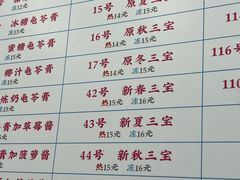 冰糖龟苓膏
冻13元
15号 原夏三宝
冻15元 冻16元
蜜糖龟苓膏
冻12元
16号 原秋三宝
热14元 冻15元
椰汁龟苓膏
冻15元
17号 原冬三宝
热14元 冻15元
炼奶龟苓膏
冻12元
42号 新春三宝
热15元 冻16元
膏加草莓酱
冻15元
43号 新夏三宝
热15元 冻16元
膏加菠萝酱
44号 新秋三宝
热15元 冻16元
11
116号
110